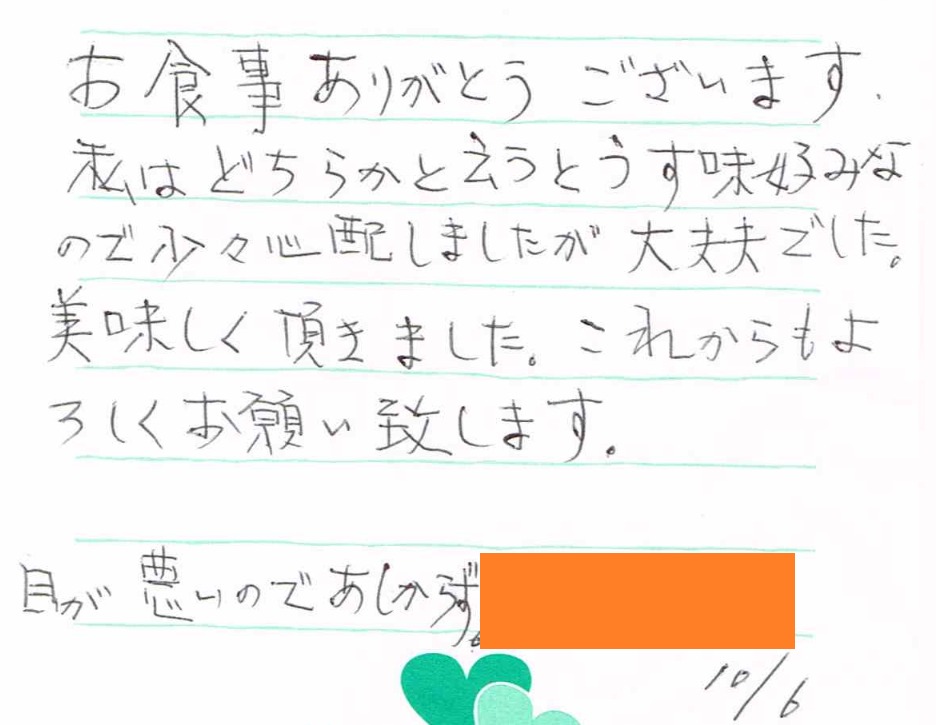 お食事ありがとうございます.
私はどちらかと云うとうす味好みな
ので少々心配しましたが大丈夫でした。
美味しく頂きました。これからもよ
ろしくお願い致します.
目が悪いのであしからず。
10/6